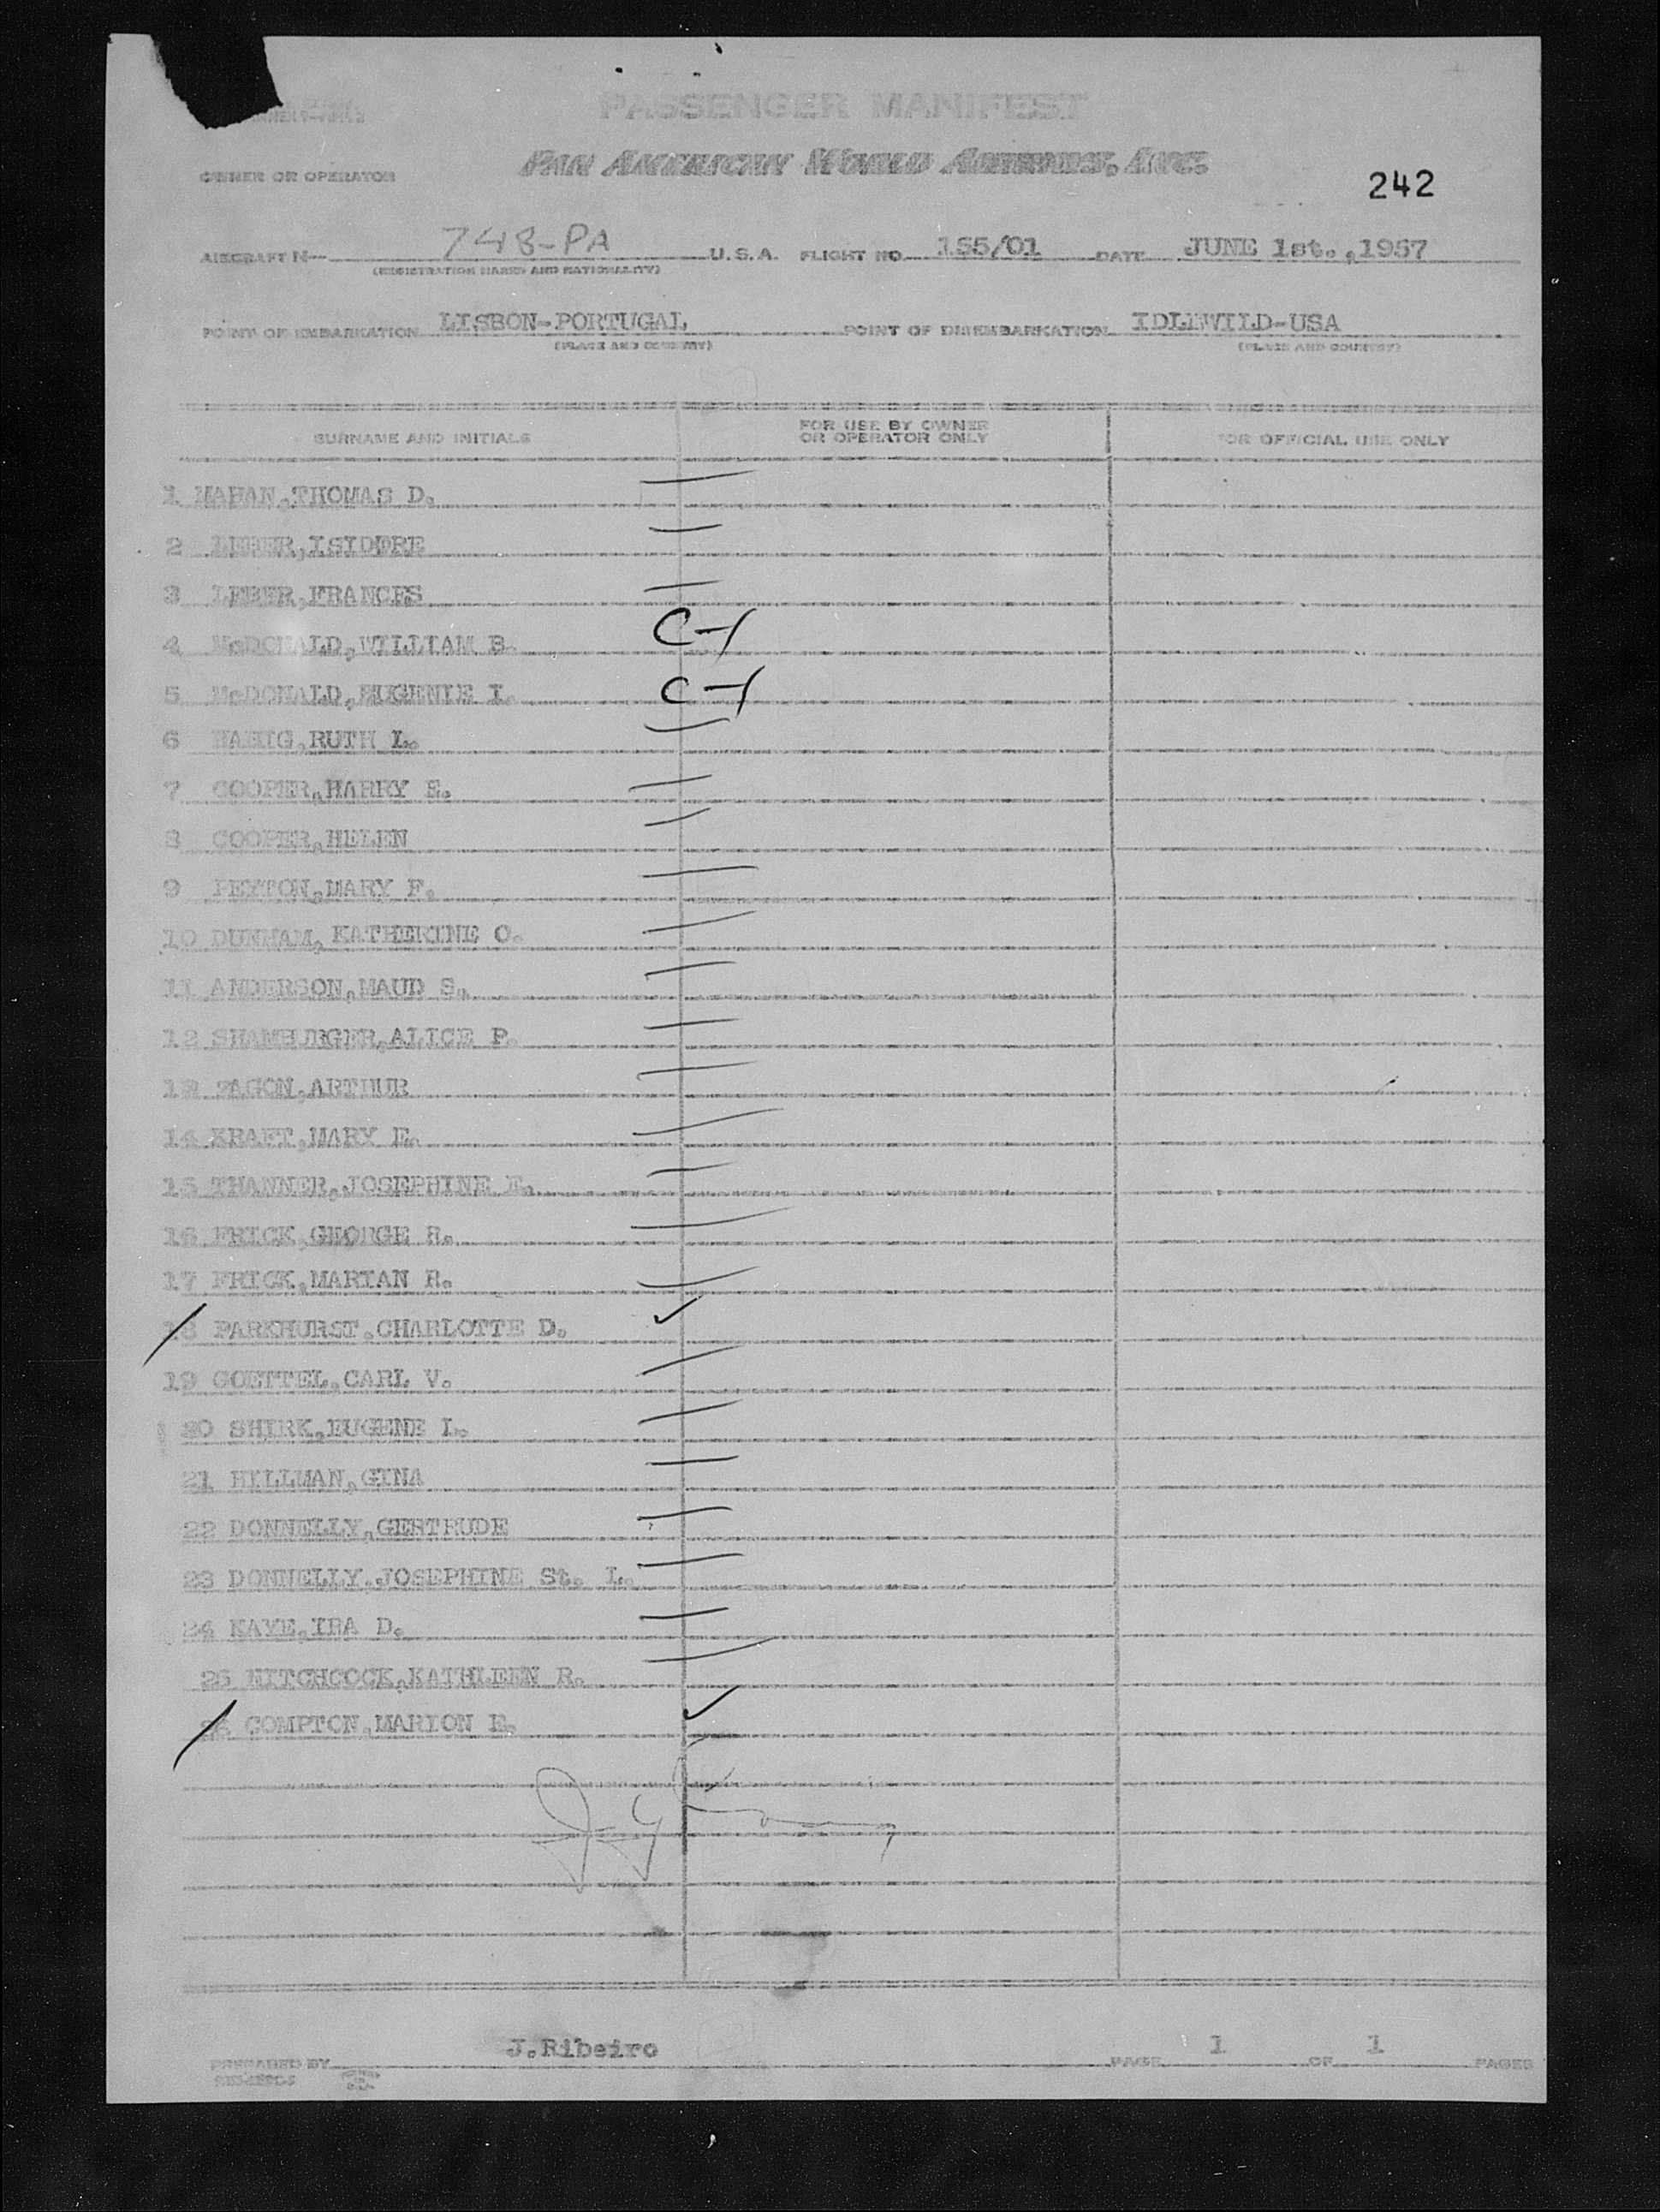 PASSENGER MANIFEST
PAN AMERICAN WORLD AIRWAYS, INC.
OWNER OR OPERATOR
242
AIRCRAFT N— 748-PA U.S.A. FLIGHT NO. 155/01 DATE JUNE 1st.,1957
(REGISTRATION MARKS AND NATIONALITY)
POINT OF EMBARKATION LISBON-PORTUGAL POINT OF DISEMBARKATION IDLEWILD-USA
(PLACE AND COUNTRY) (PLACE AND COUNTRY)
SURNAME AND INITIALS FOR USE BY OWNER OR OPERATOR ONLY FOR OFFICIAL USE ONLY
1 MAHAN,THOMAS D.
2 LEBER,ISIDORE
3 LEBER,FRANCES
4 McDONALD,WILLIAM B. C-1
5 McDONALD,EUGENIE I. C-1
6 HABIG,RUTH L.
7 COOPER,HARRY E.
8 COOPER,HELEN
9 PEYTON,MARY F.
10 DUNHAM, KATHERINE O.
11 ANDERSON,MAUD S.
12 SHAMBURGER,ALICE P.
13 ZAGON,ARTHUR
14 KRAFT,MARY E.
15 THANNER,JOSEPHINE E.
16 FRICK,GEORGE H.
17 FRICK,MARIAN R.
18 PARKHURST,CHARLOTTE D. ✓
19 GOETTEL,CARL V.
20 SHIRK,EUGENE L.
21 HILLMAN,GINA
22 DONNELLY,GERTRUDE
23 DONNELLY,JOSEPHINE St. L.
24 KAYE,IRA D.
25 HITCHCOCK,KATHLEEN R.
26 COMPTON,MARION E. ✓
PREPARED BY J.Ribeiro PAGE 1 OF 1 PAGES